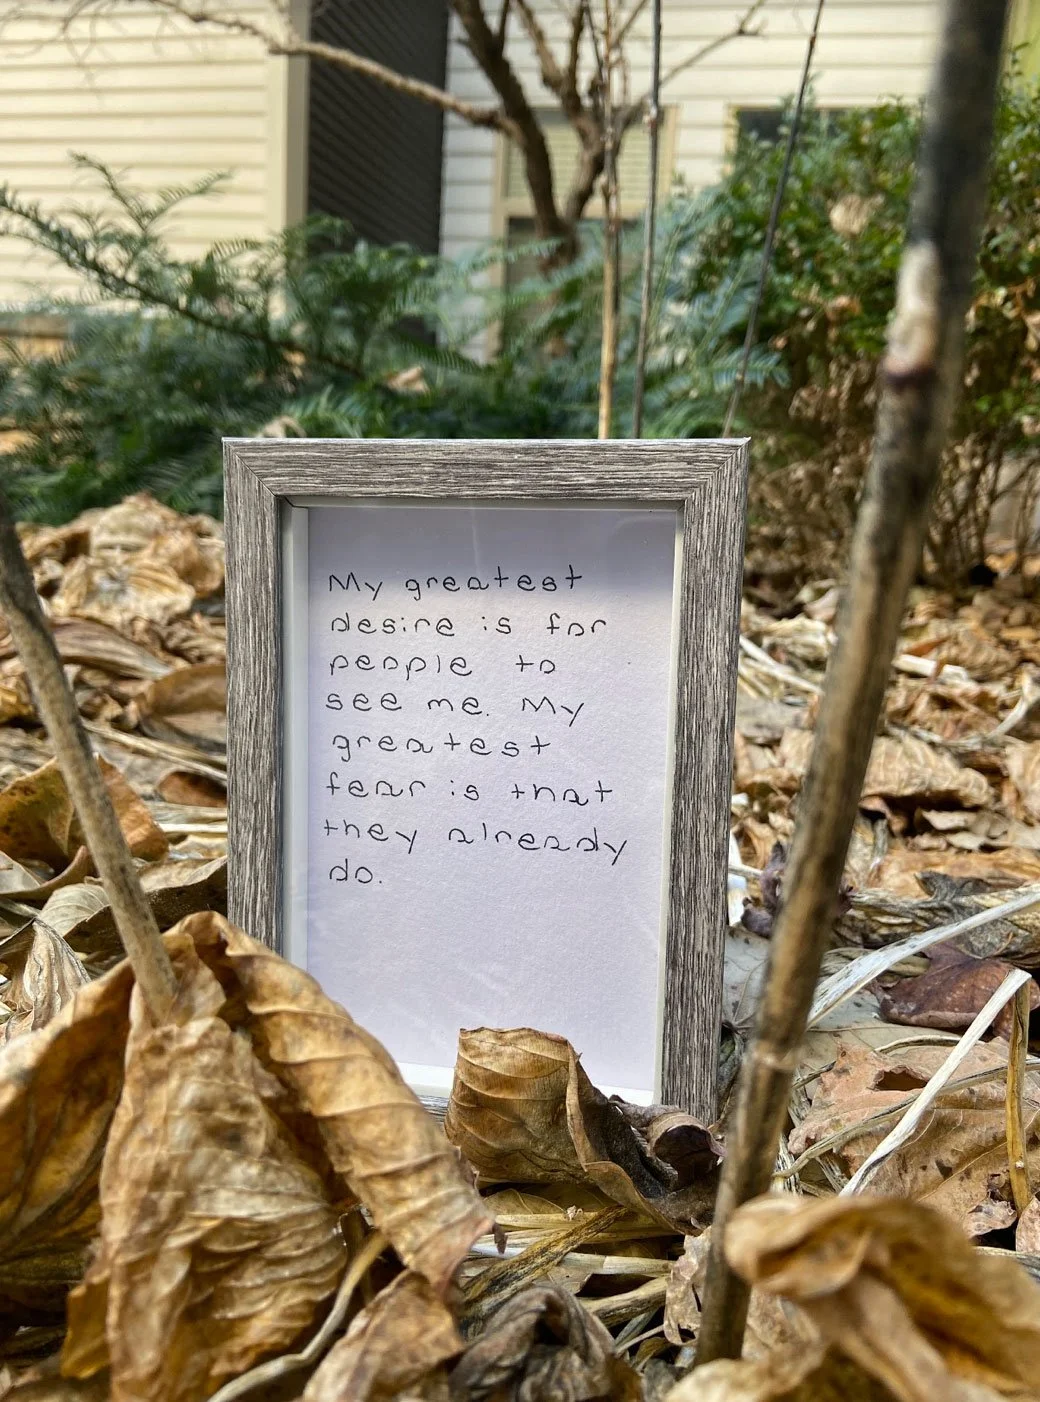 My greatest
desire is for
people to
see me. My
greatest
fear is that
they already
do.